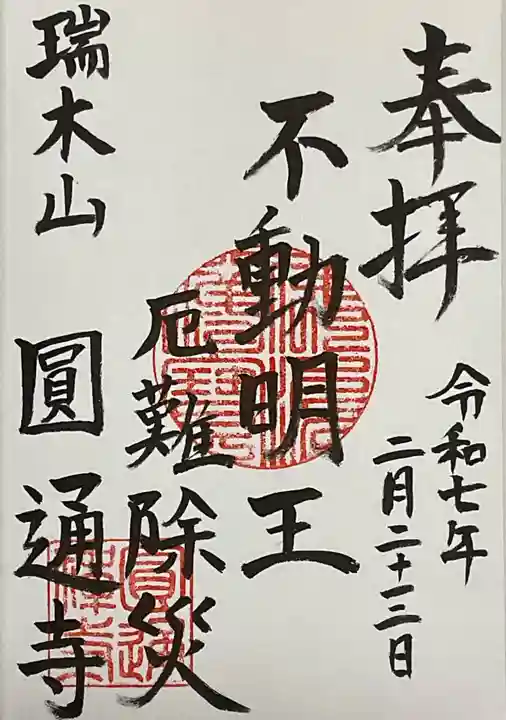 奉拝
令和七年
二月二十三日
不動明王
厄難除災
瑞木山
圓通寺